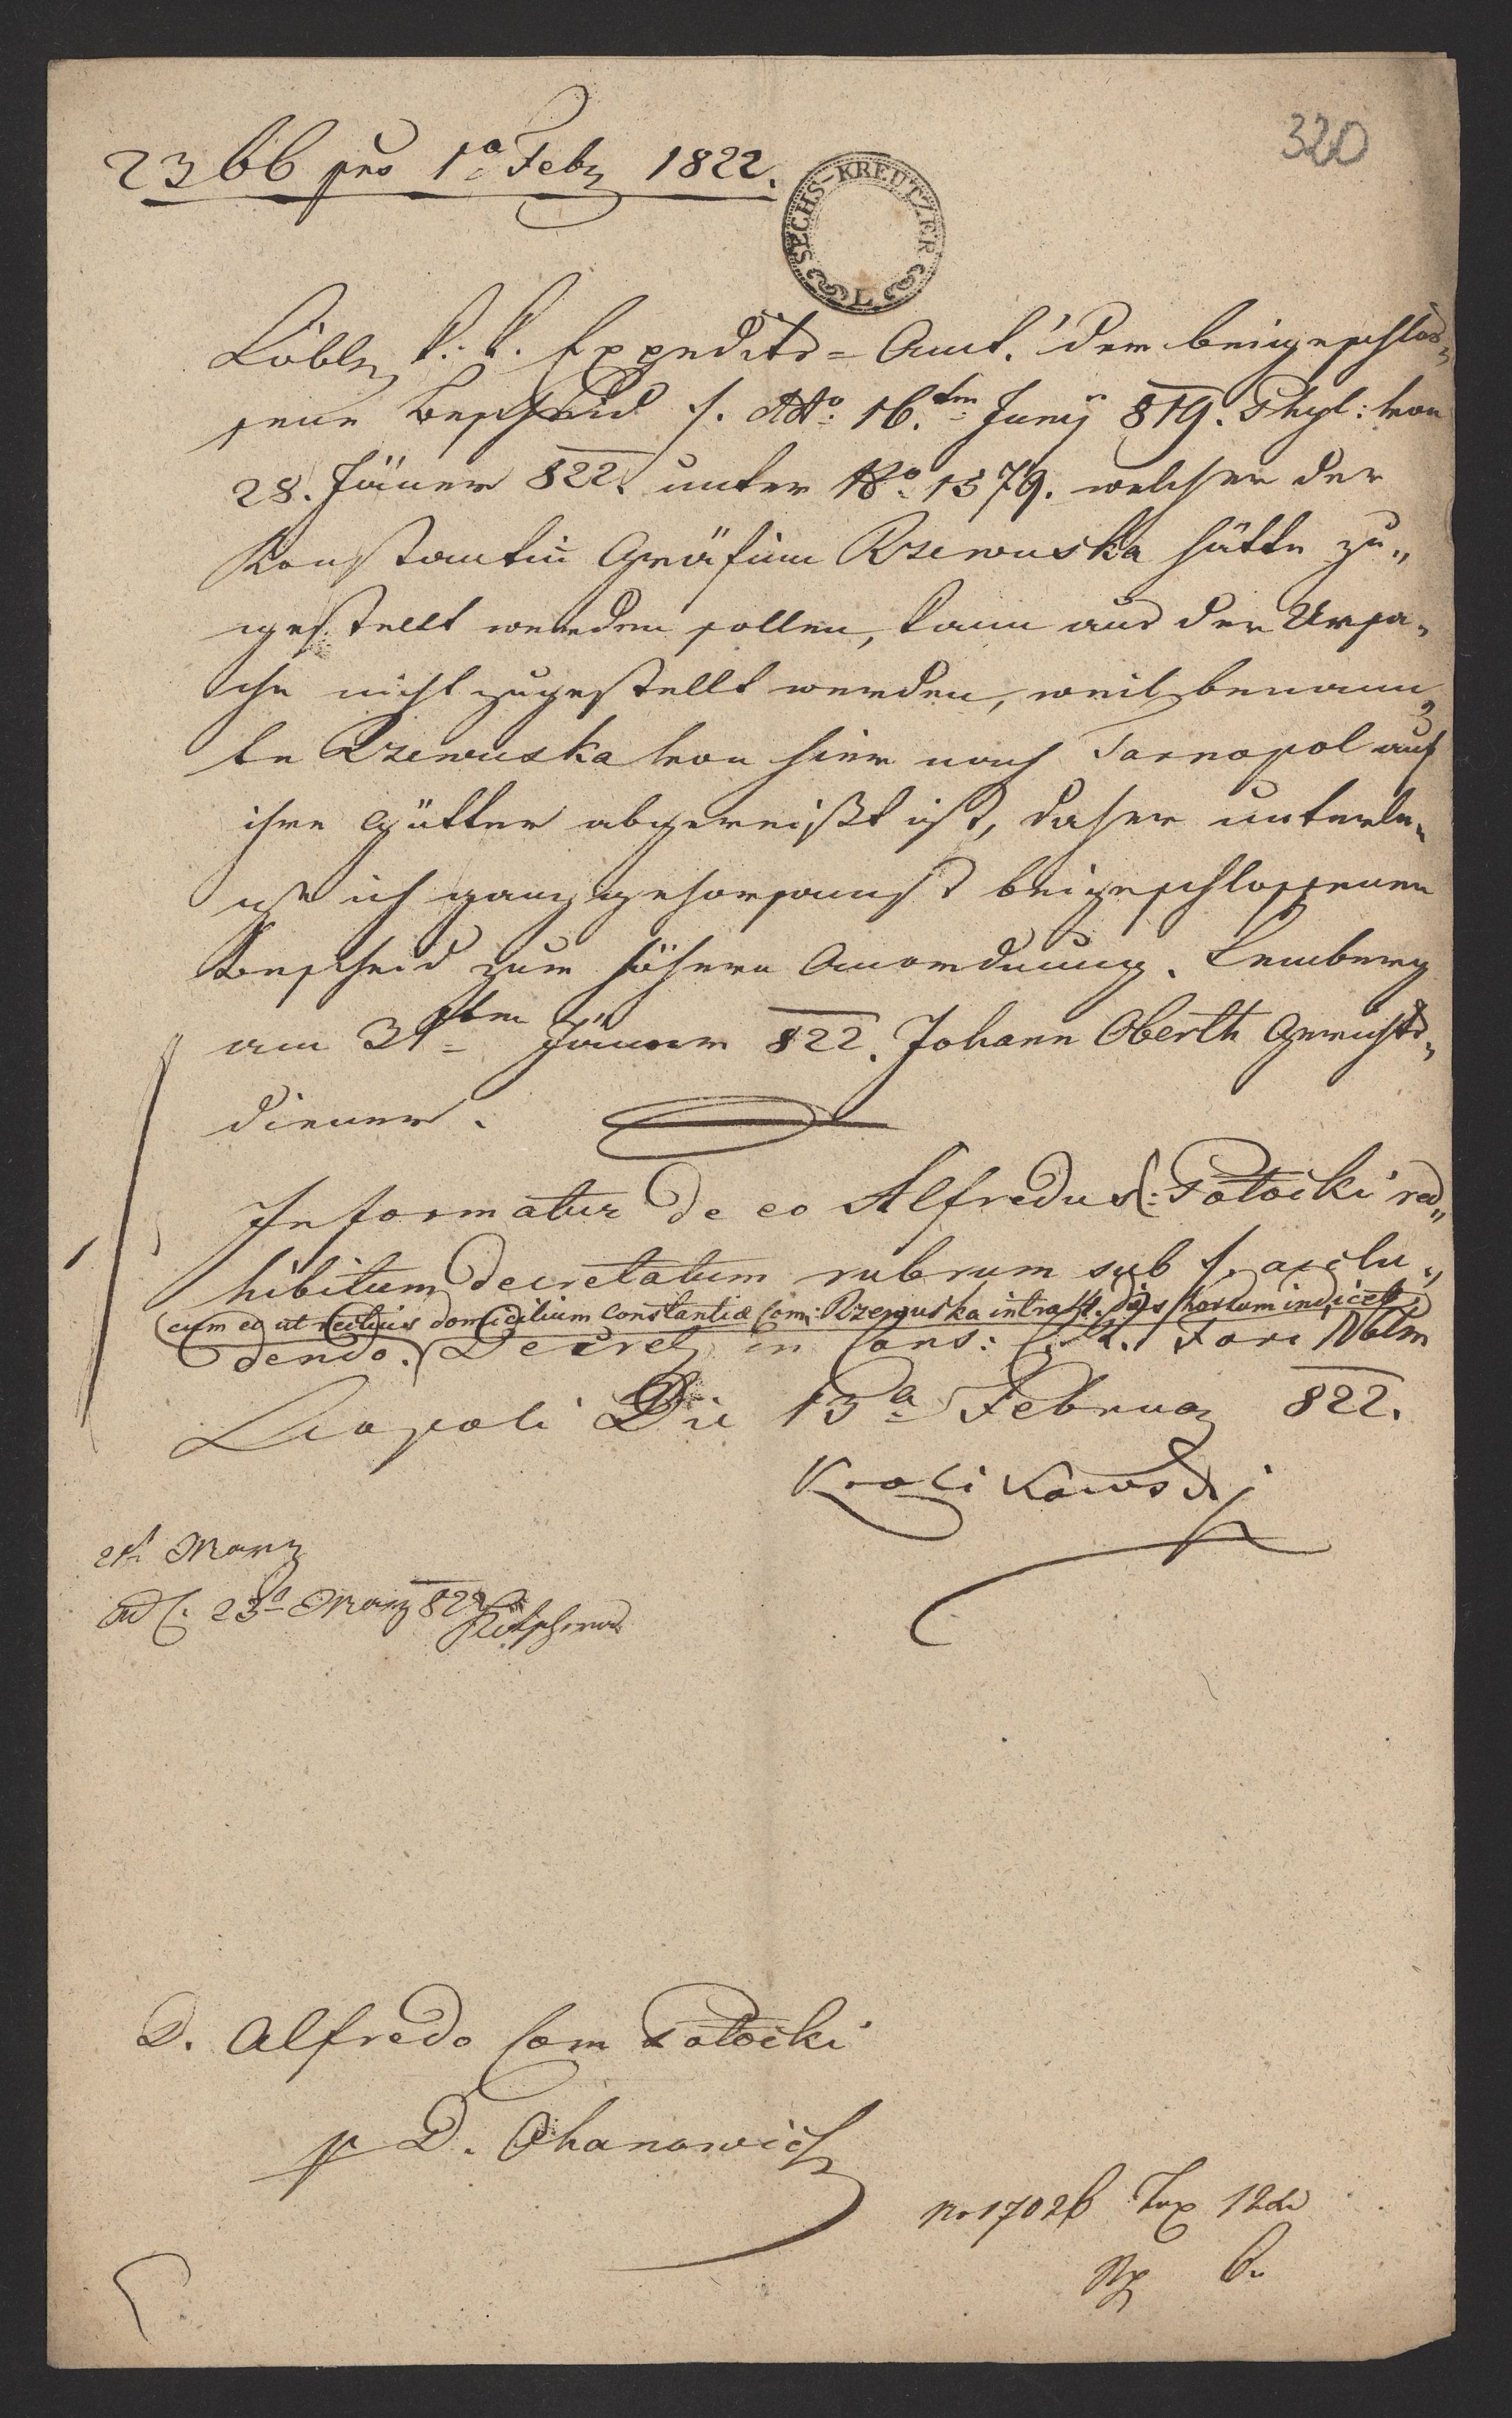 320
2366 pro 1a Febr 1822.
SECHS-KREUTZER
L
Löbl. k. k. Expedits-Amt! der beigeschlos„
sene Bescheid ./. ddto 16.ten Junÿ 819. Phzl: von
28. Jäner 822. unter No 1579. welcher der
Konstantin Gräfinn Rzewuska hätte zu„
gestellt werden sollen, kann aus der Ursa„
che nicht zugestellt werden, weil benann„
te Rzewuska von hier nach Tarnopol auf
ihre Gütter abgereißt ist, daher unterle„
ge ich ganz gehorsamst beigeschlossenen
Bescheid zum höhern Anordnung. Lemberg
am 31ten Jänner 822. Johann Oberth Gerichts„
diener.
Informatur de eo Alfredus C: Potocki red„
hibitum decretatum rubrum sub ./. acclu„
cum eo ut rectius domicilium Constantiæ Com: Rzewuska intra 14. dies horsum indicet
dendo. Decret in Cons: C. R. Fori Nblm
Leopoli Die 13a Februar 822.
Krolikowskj
21 Marz
Ad C. 23a Marz 822
D. Alfredo Com Potocki
p D. Ohanowicz
No 17026 Tax 12
6